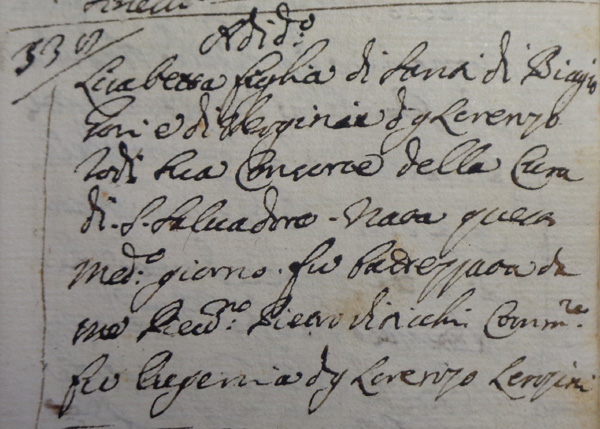 Adi d.º
Lisabetta figlia di Santi di Biagio
Tori e di Verginia di q Lorenzo
Todi sua Consorte della Cura
di S. Salvadore. Nata questo
Med.º giorno. fu battezzata da
me Piero Comm.re
fu Eugenia di q Lorenzo Lenzini